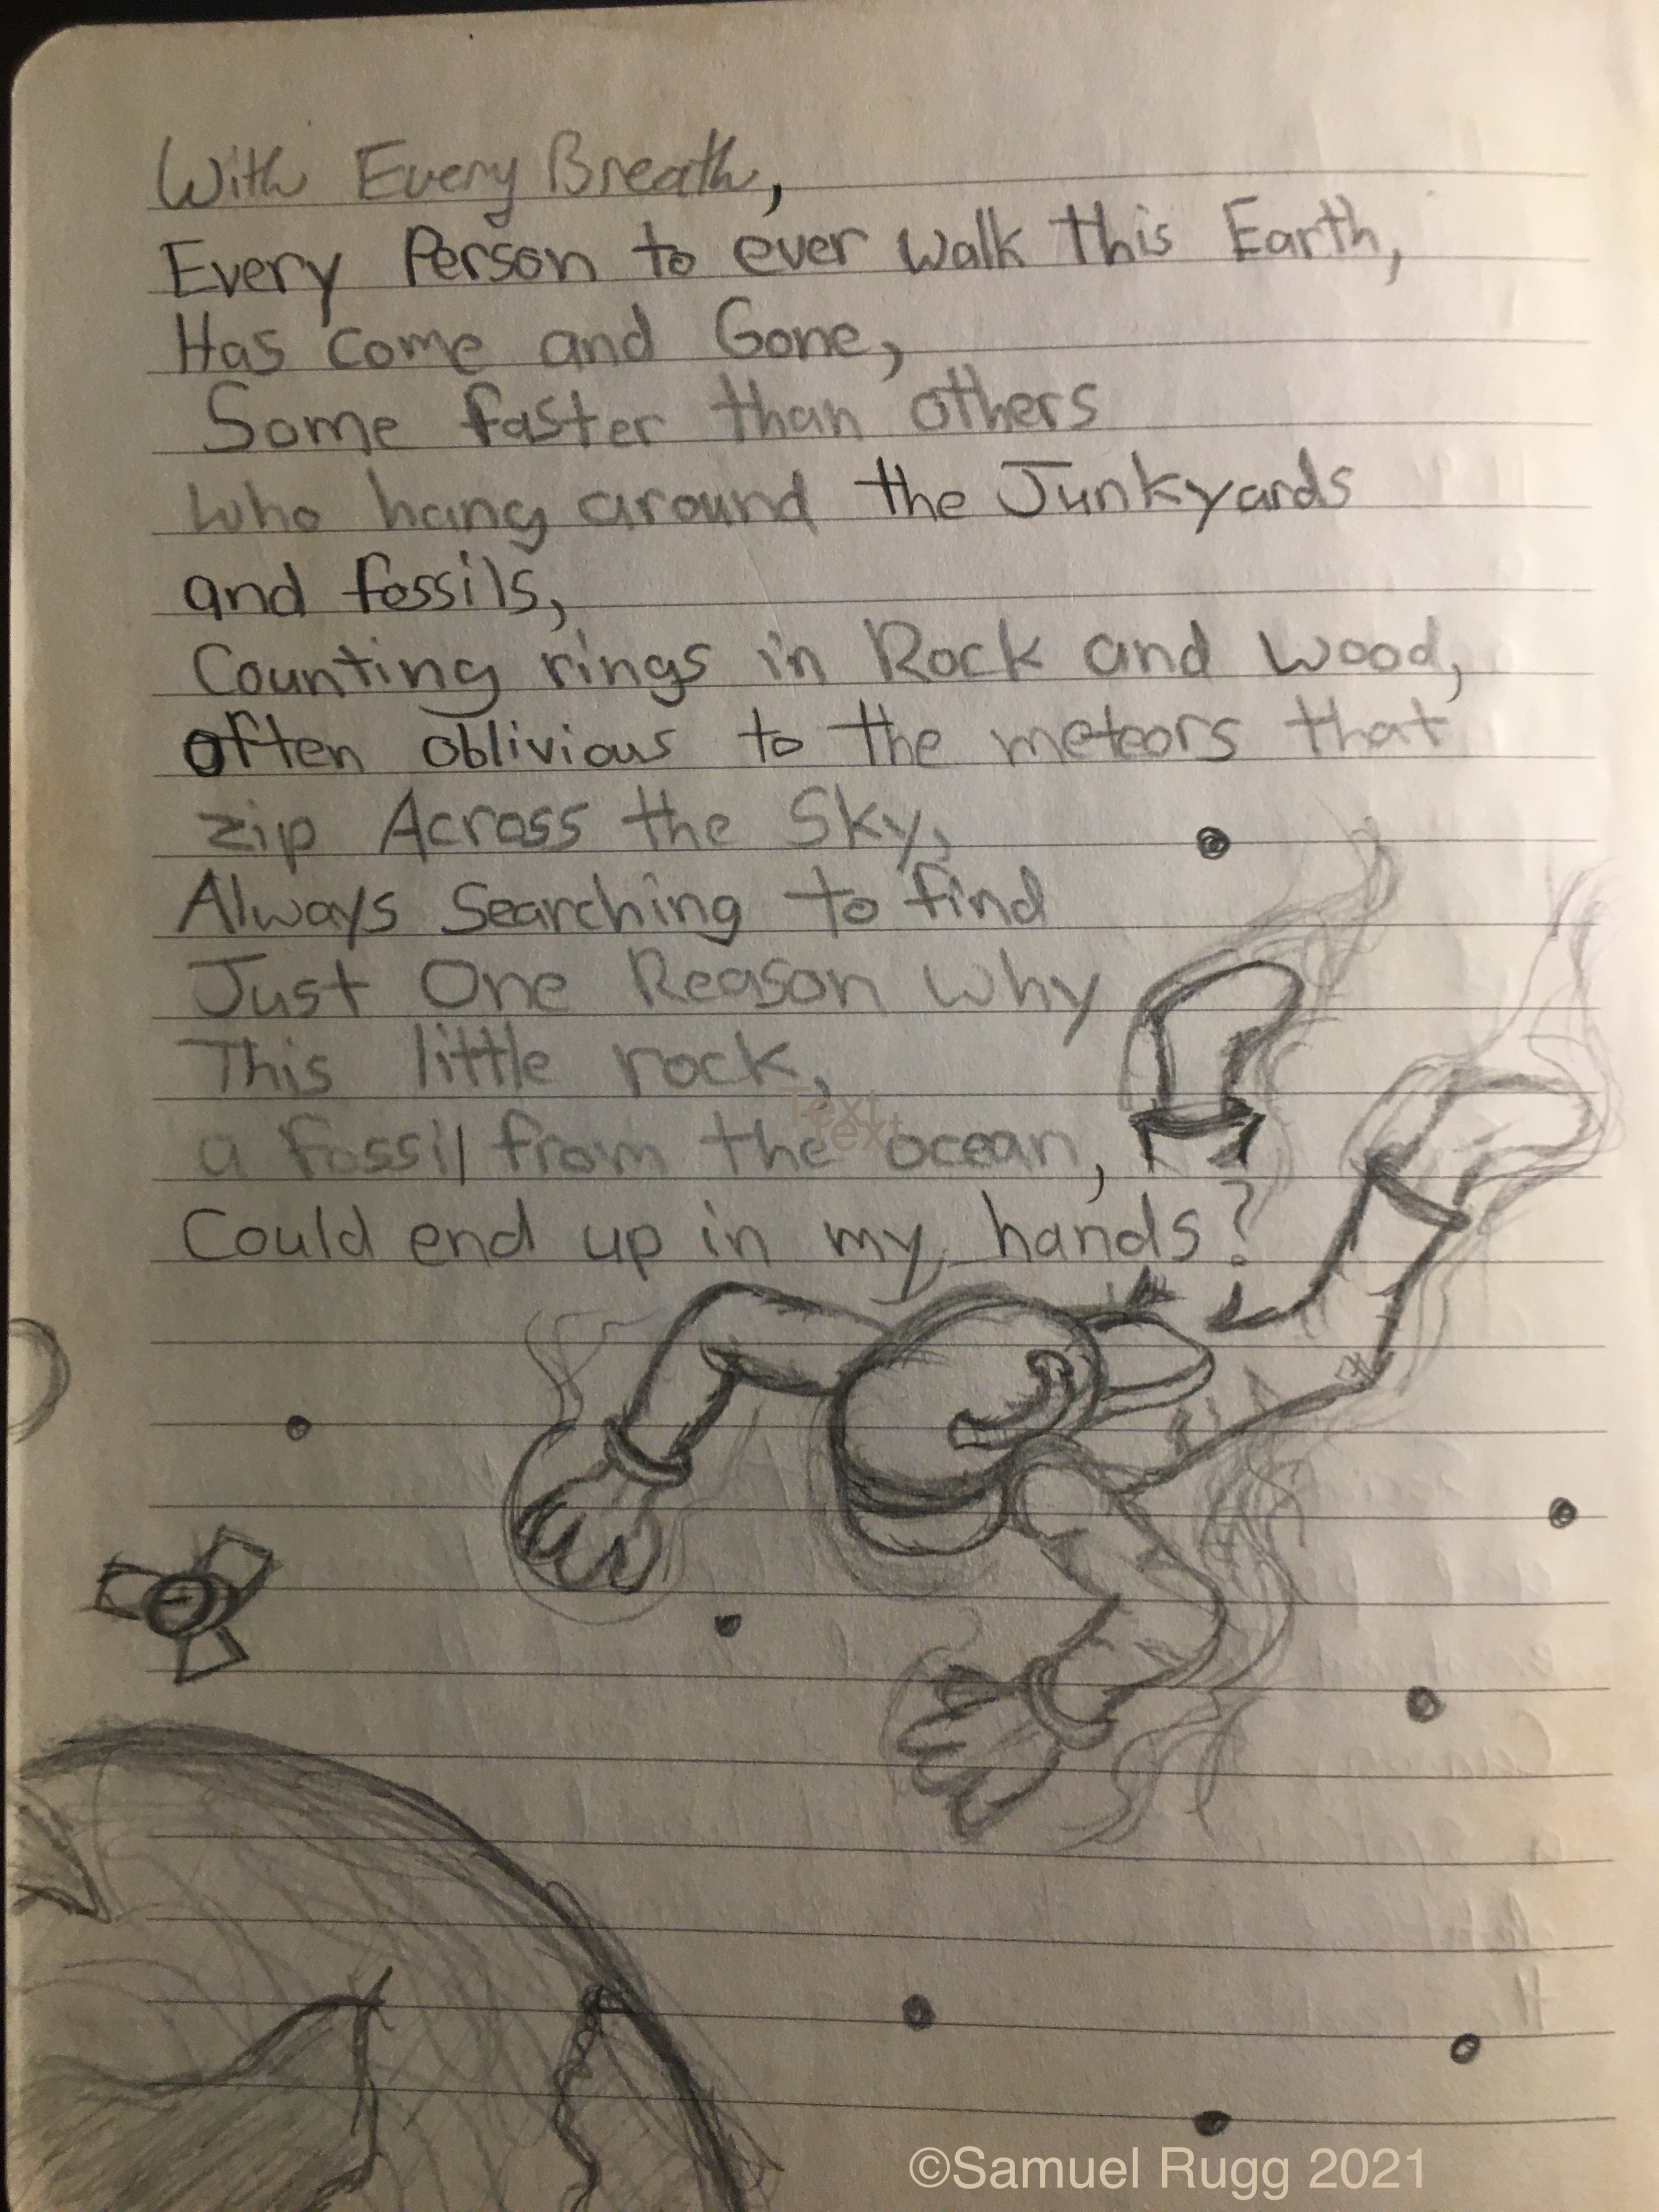 With Every Breath,
Every Person to ever walk this Earth,
Has come and Gone,
Some faster than others
who hang around the Junkyards
and fossils,
Counting rings in Rock and Wood,
often oblivious to the meteors that
zip Across the Sky,
Always Searching to find
Just One Reason why
This little rock,
Text
a fossil from the ocean,
Text
Could end up in my hands?
©Samuel Rugg 2021